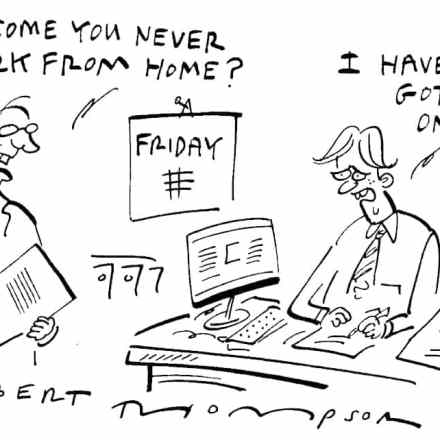 COME YOU NEVER
RK FROM HOME?
I HAVE
GOT
ON
FRIDAY
BERT
THOMPSON